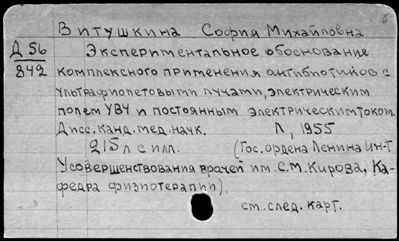 Витушкина София Михайловна
Д 56 Экспериментальное обоснование
842 комплексного применения антибиотиков с
ультрафиолетовыми лучами, электрическим
полем УВЧ и постоянным электрическим током.
Дисс. канд. мед. наук. Л, 1955
215 л с илл. (Гос. ордена Ленина Ин-т
Усовершенствования врачей им. С.М. Кирова, Ка-
федра физиотерапии).
см. след. карт.